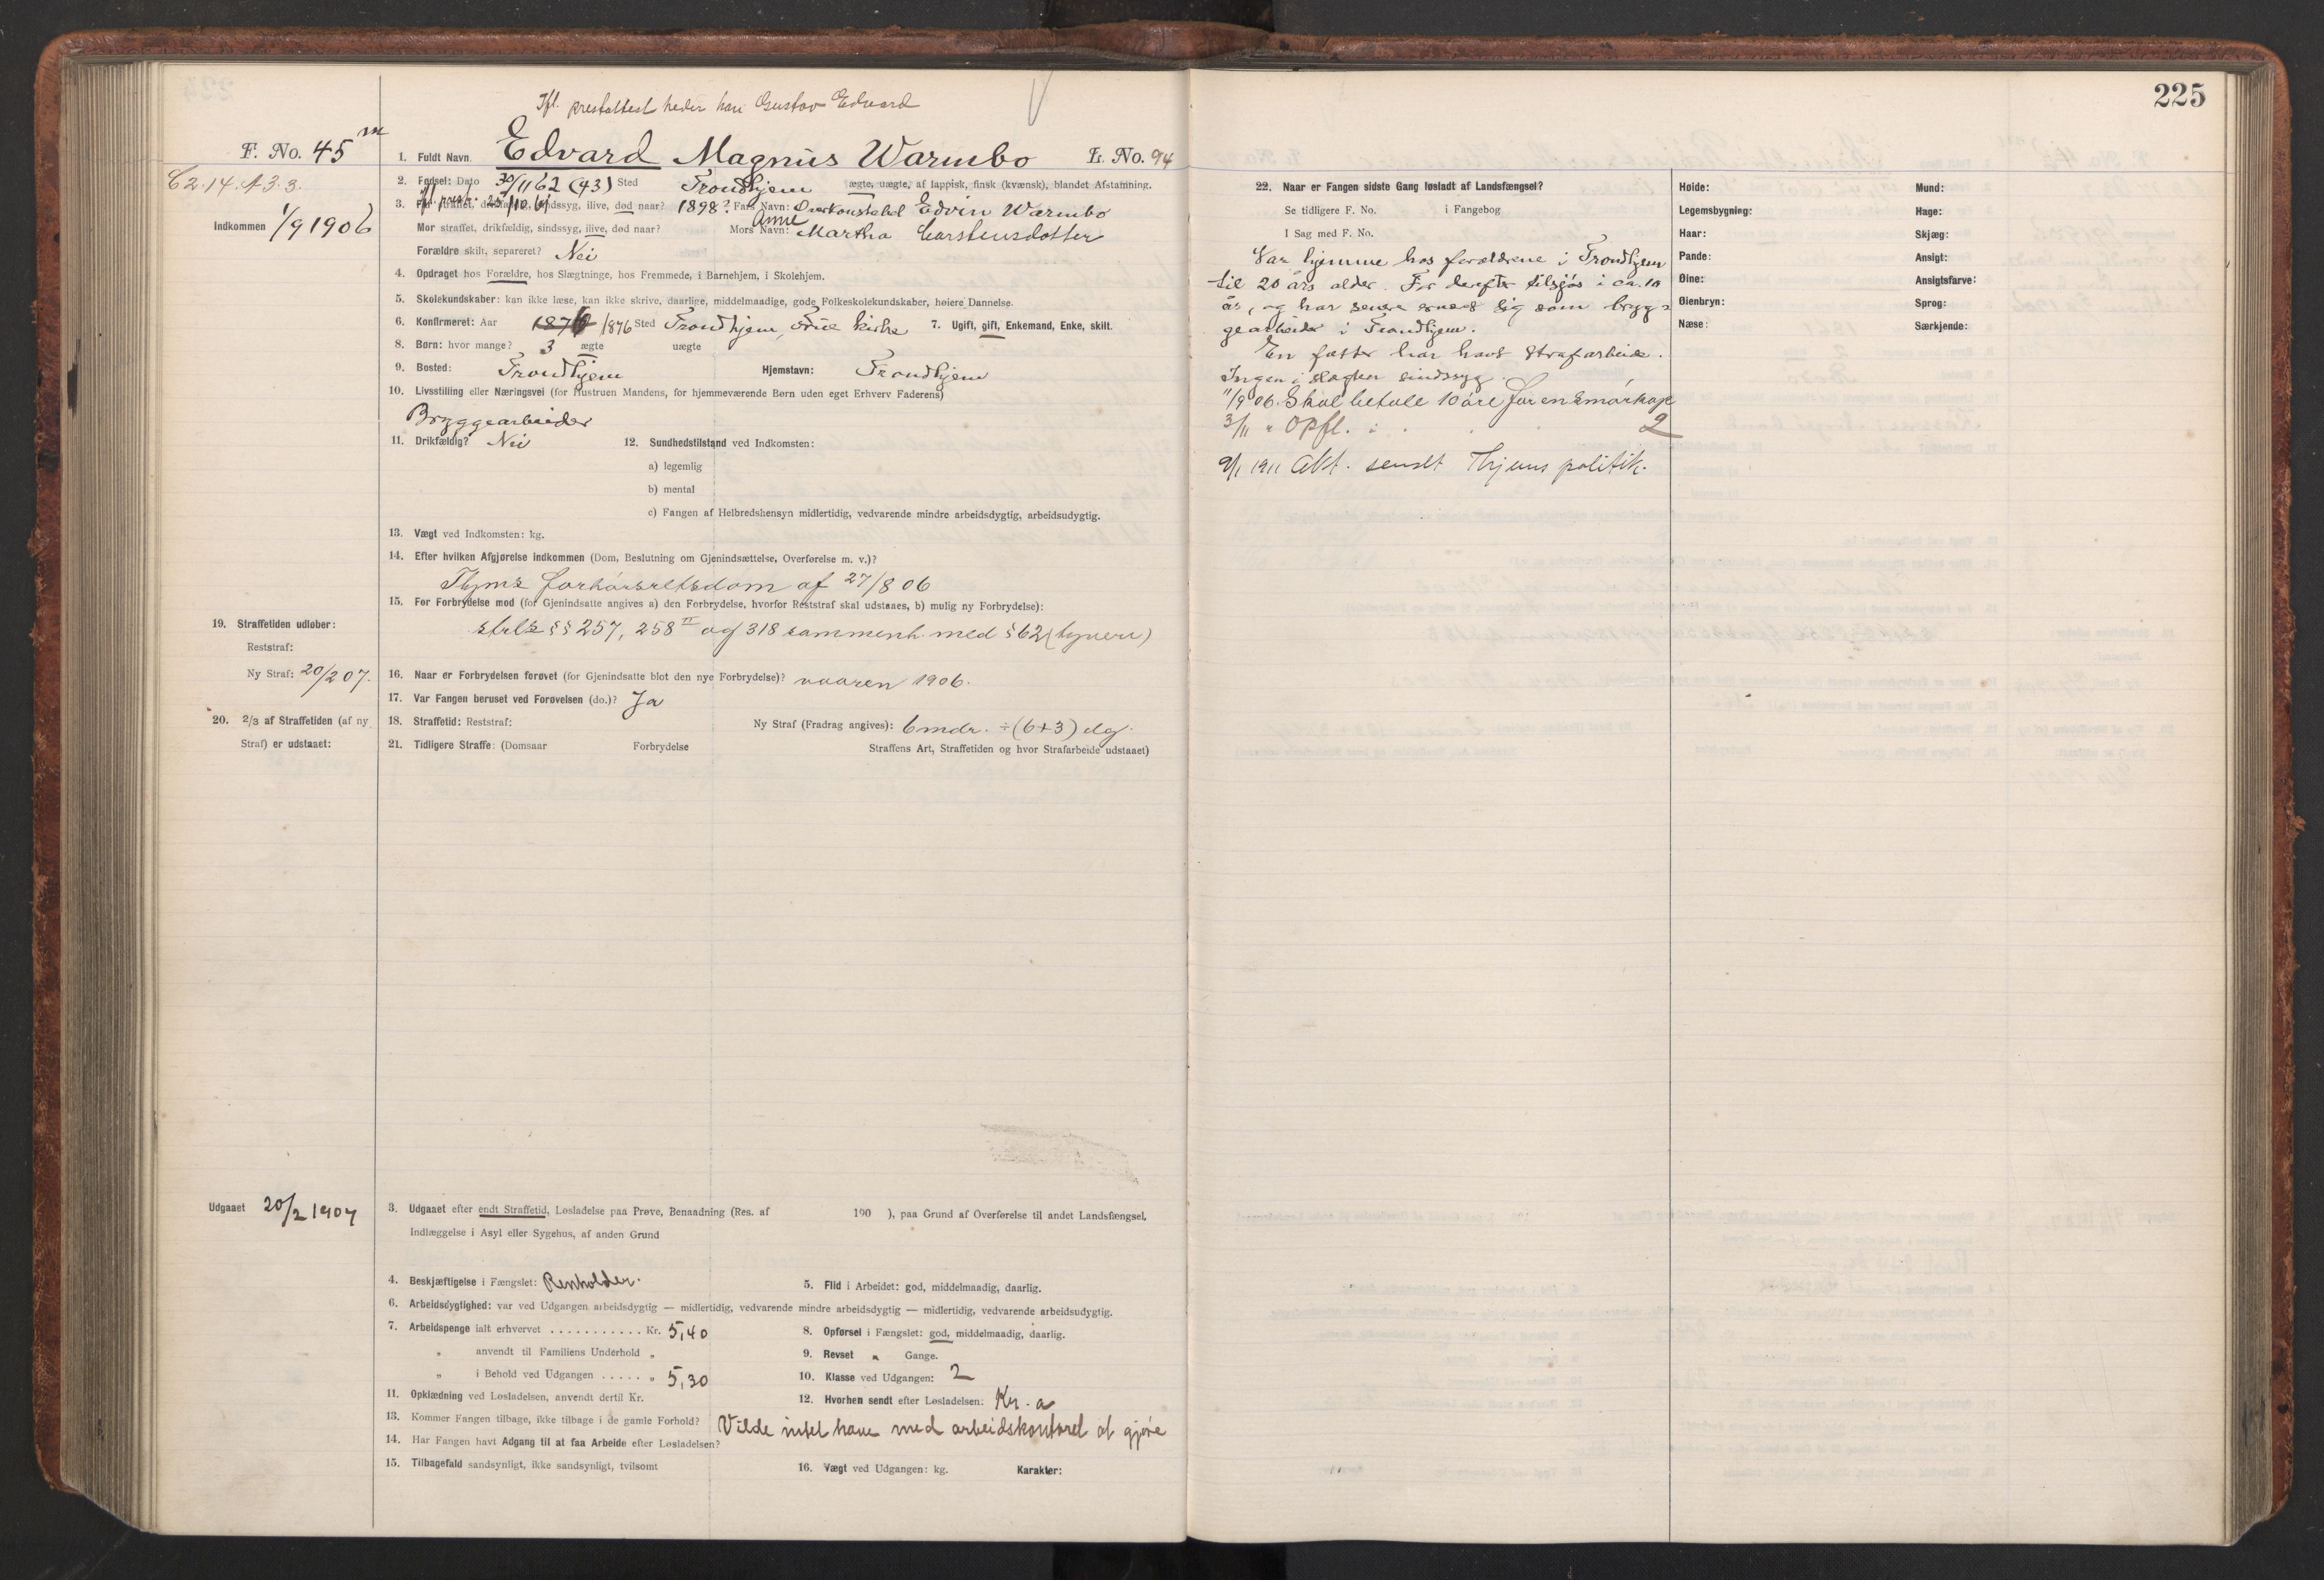 225
Ifl. prestattest heder han Gustav Edvard
F. No. 45 m
1. Fuldt Navn. Edvard Magnus Warmbo L. No. 94
C2.14. A3.3.
2. Fødsel: Dato 30/11 62 (43) Sted Trondhjem ægte, uægte, af lappisk, finsk (kvænsk), blandet Afstamning.
ifl. prest. 25/10 61
3. Far straffet, drikfældig, sindssyg, ilive, død naar? 1898? Fars Navn: Overkonstabel Edvin Warmbo
Indkommen 1/9 1906
Mor straffet, drikfældig, sindssyg, ilive, død naar? Mors Navn: Anne Martha Carstensdatter
Forældre skilt, separeret? Nei
4. Opdraget hos Forældre, hos Slægtninge, hos Fremmede, i Barnehjem, i Skolehjem.
5. Skolekundskaber: kan ikke læse, kan ikke skrive, daarlige, middelmaadige, gode Folkeskolekundskaber, høiere Dannelse.
6. Konfirmeret: Aar 1876 1876 Sted Trondhjem, Frue kirke 7. Ugift, gift, Enkemand, Enke, skilt.
8. Børn: hvor mange? 3 ægte uægte
9. Bosted: Trondhjem Hjemstavn: Trondhjem
10. Livsstilling eller Næringsvei (for Hustruen Mandens, for hjemmeværende Børn uden eget Erhverv Faderens)
Bryggearbeider
11. Drikfældig? Nei 12. Sundhedstilstand ved Indkomsten:
a) legemlig
b) mental
c) Fangen af Helbredshensyn midlertidig, vedvarende mindre arbeidsdygtig, arbeidsudygtig.
13. Vægt ved Indkomsten: kg.
14. Efter hvilken Afgjørelse indkommen (Dom, Beslutning om Gjenindsættelse, Overførelse m. v.)?
Thjms forhørsretsdom af 27/8 06
15. For Forbrydelse mod (for Gjenindsatte angives a) den Forbrydelse, hvorfor Reststraf skal udstaaes, b) mulig ny Forbrydelse):
strls §§ 257, 258 II og 318 sammenh. med § 62 (tyveri)
19. Straffetiden udløber:
Reststraf:
Ny Straf: 20/2 07.
16. Naar er Forbrydelsen forøvet (for Gjenindsatte blot den nye Forbrydelse)? vaaren 1906.
17. Var Fangen beruset ved Forøvelsen (do.)? Ja
20. 2/3 af Straffetiden (af ny Straf) er udstaaet:
18. Straffetid: Reststraf: Ny Straf (Fradrag angives): 6 mdr. ÷ (6+3) dg.
21. Tidligere Straffe: (Domsaar Forbrydelse Straffens Art, Straffetiden og hvor Strafarbeide udstaaet)
Udgaaet 20/2 1907
3. Udgaaet efter endt Straffetid, Løsladelse paa Prøve, Benaadning (Res. af 190 ), paa Grund af Overførelse til andet Landsfængsel,
Indlæggelse i Asyl eller Sygehus, af anden Grund
4. Beskjæftigelse i Fængslet: Renholder. 5. Flid i Arbeidet: god, middelmaadig, daarlig.
6. Arbeidsdygtighed: var ved Udgangen arbeidsdygtig — midlertidig, vedvarende mindre arbeidsdygtig — midlertidig, vedvarende arbeidsudygtig.
7. Arbeidspenge ialt erhvervet ........... Kr. 5,40 8. Opførsel i Fængslet: god, middelmaadig, daarlig.
„ anvendt til Familiens Underhold „ 9. Revset „ Gange.
„ i Behold ved Udgangen ..... „ 5,30 10. Klasse ved Udgangen: 2
11. Opklædning ved Løsladelsen, anvendt dertil Kr. 12. Hvorhen sendt efter Løsladelsen: Kr.a
13. Kommer Fangen tilbage, ikke tilbage i de gamle Forhold? Vilde intet have med arbeidskontoret at gjøre
14. Har Fangen havt Adgang til at faa Arbeide efter Løsladelsen?
15. Tilbagefald sandsynligt, ikke sandsynligt, tvilsomt 16. Vægt ved Udgangen: kg. Karakter:
22. Naar er Fangen sidste Gang løsladt af Landsfængsel?
Se tidligere F. No. i Fangebog
I Sag med F. No.
Var hjemme hos forældrene i Trondhjem
til 20 års alder. For derefter tilsjøs i ca. 10
år, og har senere ernært sig som brygg-
gearbeider i Trondhjem.
En fætter har havt strafarbeide.
Ingen i slægten sindssyg.
11/9 06. Skal betale 10 øre for en smørkop
3/11 " Opfl. 2
9/1 1911 Akt. sendt Thjems politik.
Høide: Mund:
Legemsbygning: Hage:
Haar: Skjæg:
Pande: Ansigt:
Øine: Ansigtsfarve:
Øienbryn: Sprog:
Næse: Særkjende: